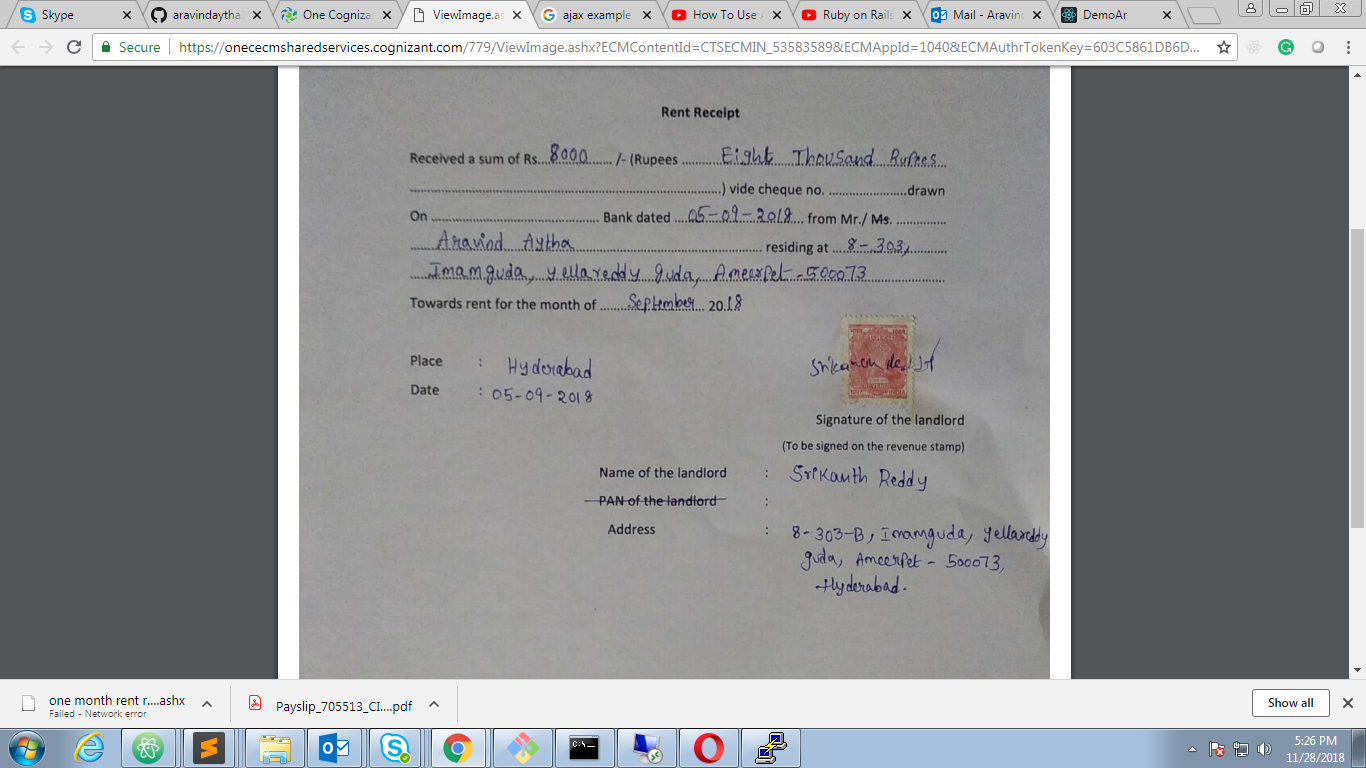 Skype
aravindaytha
One Cogniza
ViewImage.as
ajax example
How To Use
Ruby on Rails
Mail - Aravin
DemoAr
Secure
https://onececmsharedservices.cognizant.com/779/ViewImage.ashx?ECMContentId=CTSECMIN_53583589&ECMAppId=1040&ECMAuthrTokenKey=603C5861DB6D...
Rent Receipt
Received a sum of Rs...8000........ /- (Rupees ...........Eight Thousand Rupees
.................................................................................) vide cheque no. ......................drawn
On ........................................... Bank dated ....05-09-2018... from Mr./ Ms. ..............
......Aravind Aytha................................................... residing at ...8-303,..........
.....Imamguda, yellareddy guda, Ameerpet - 500073......................
Towards rent for the month of .......September... 2018
Place : Hyderabad
Date : 05-09-2018
Signature of the landlord
(To be signed on the revenue stamp)
Name of the landlord : Srikanth Reddy
PAN of the landlord :
Address : 8-303-B, Imamguda, yellareddy
guda, Ameerpet - 500073,
Hyderabad.
one month rent r....ashx
Failed - Network error
Payslip_705513_CI....pdf
Show all
5:26 PM
11/28/2018